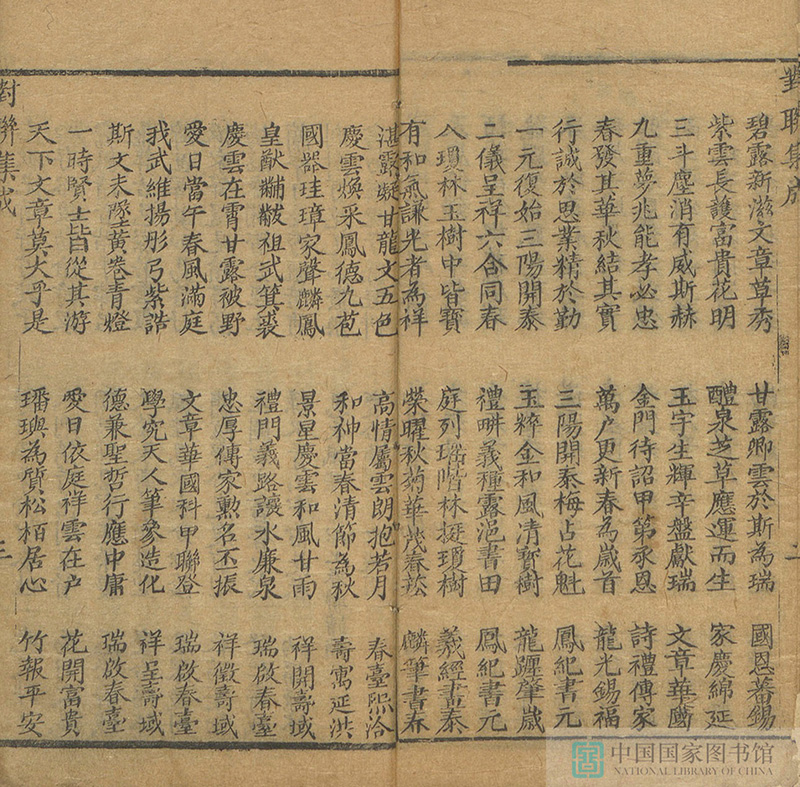 對聯集成
碧露新滋文章草秀 甘露卿雲於斯為瑞 國恩蕃錫
紫雲長護富貴花明 醴泉芝草應運而生 家慶綿延
三斗塵消有威斯赫 玉宇生輝辛盤獻瑞 文章華國
九重夢兆能孝必忠 金門待詔甲第承恩 詩禮傳家
春發其華秋結其實 萬户更新春為歲首 龍光錫福
行誠於思業精於勤 三陽開泰梅占花魁 鳳紀書元
一元復始三陽開泰 玉粹金和風清寶樹 龍躔肇歲
二儀呈祥六合同春 禮畊義種露浥書田 鳳紀書元
入瓊林玉樹中皆寶 庭列瑞階林挺瓊樹 羲經書泰
有和氣謙光者為祥 榮曜秋菊華茂春菘 麟筆書春
湛露凝甘龍文五色 高情屬雲朗抱若月 春臺熙洽
慶雲煥采鳳德九苞 和神當春清節為秋 壽寓延洪
國器珪璋家聲麟鳳 景星慶雲和風甘雨 祥開壽域
皇猷黼黻祖武箕裘 禮門義路讓水廉泉 瑞啟春臺
慶雲在霄甘露被野 忠厚傳家勲名丕振 祥徵壽域
愛日當午春風滿庭 文章華國科甲聯登 瑞啟春臺
我武維揚彤弓紫誥 學究天人筆參造化 祥呈壽域
斯文未墜黃卷青燈 德兼聖哲行應中庸 瑞啟春臺
一時賢士皆從其游 愛日依庭祥雲在户 花開富貴
天下文章莫大乎是 璠璵為質松栢居心 竹報平安
對聯集成
中国国家图书馆
NATIONAL LIBRARY OF CHINA